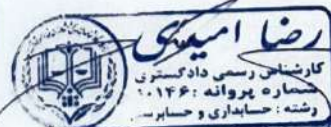 رضا امیدی
کارشناس رسمی دادگستری
شماره پروانه : ۱۰۱۴۶
رشته : حسابداری و حسابرسی